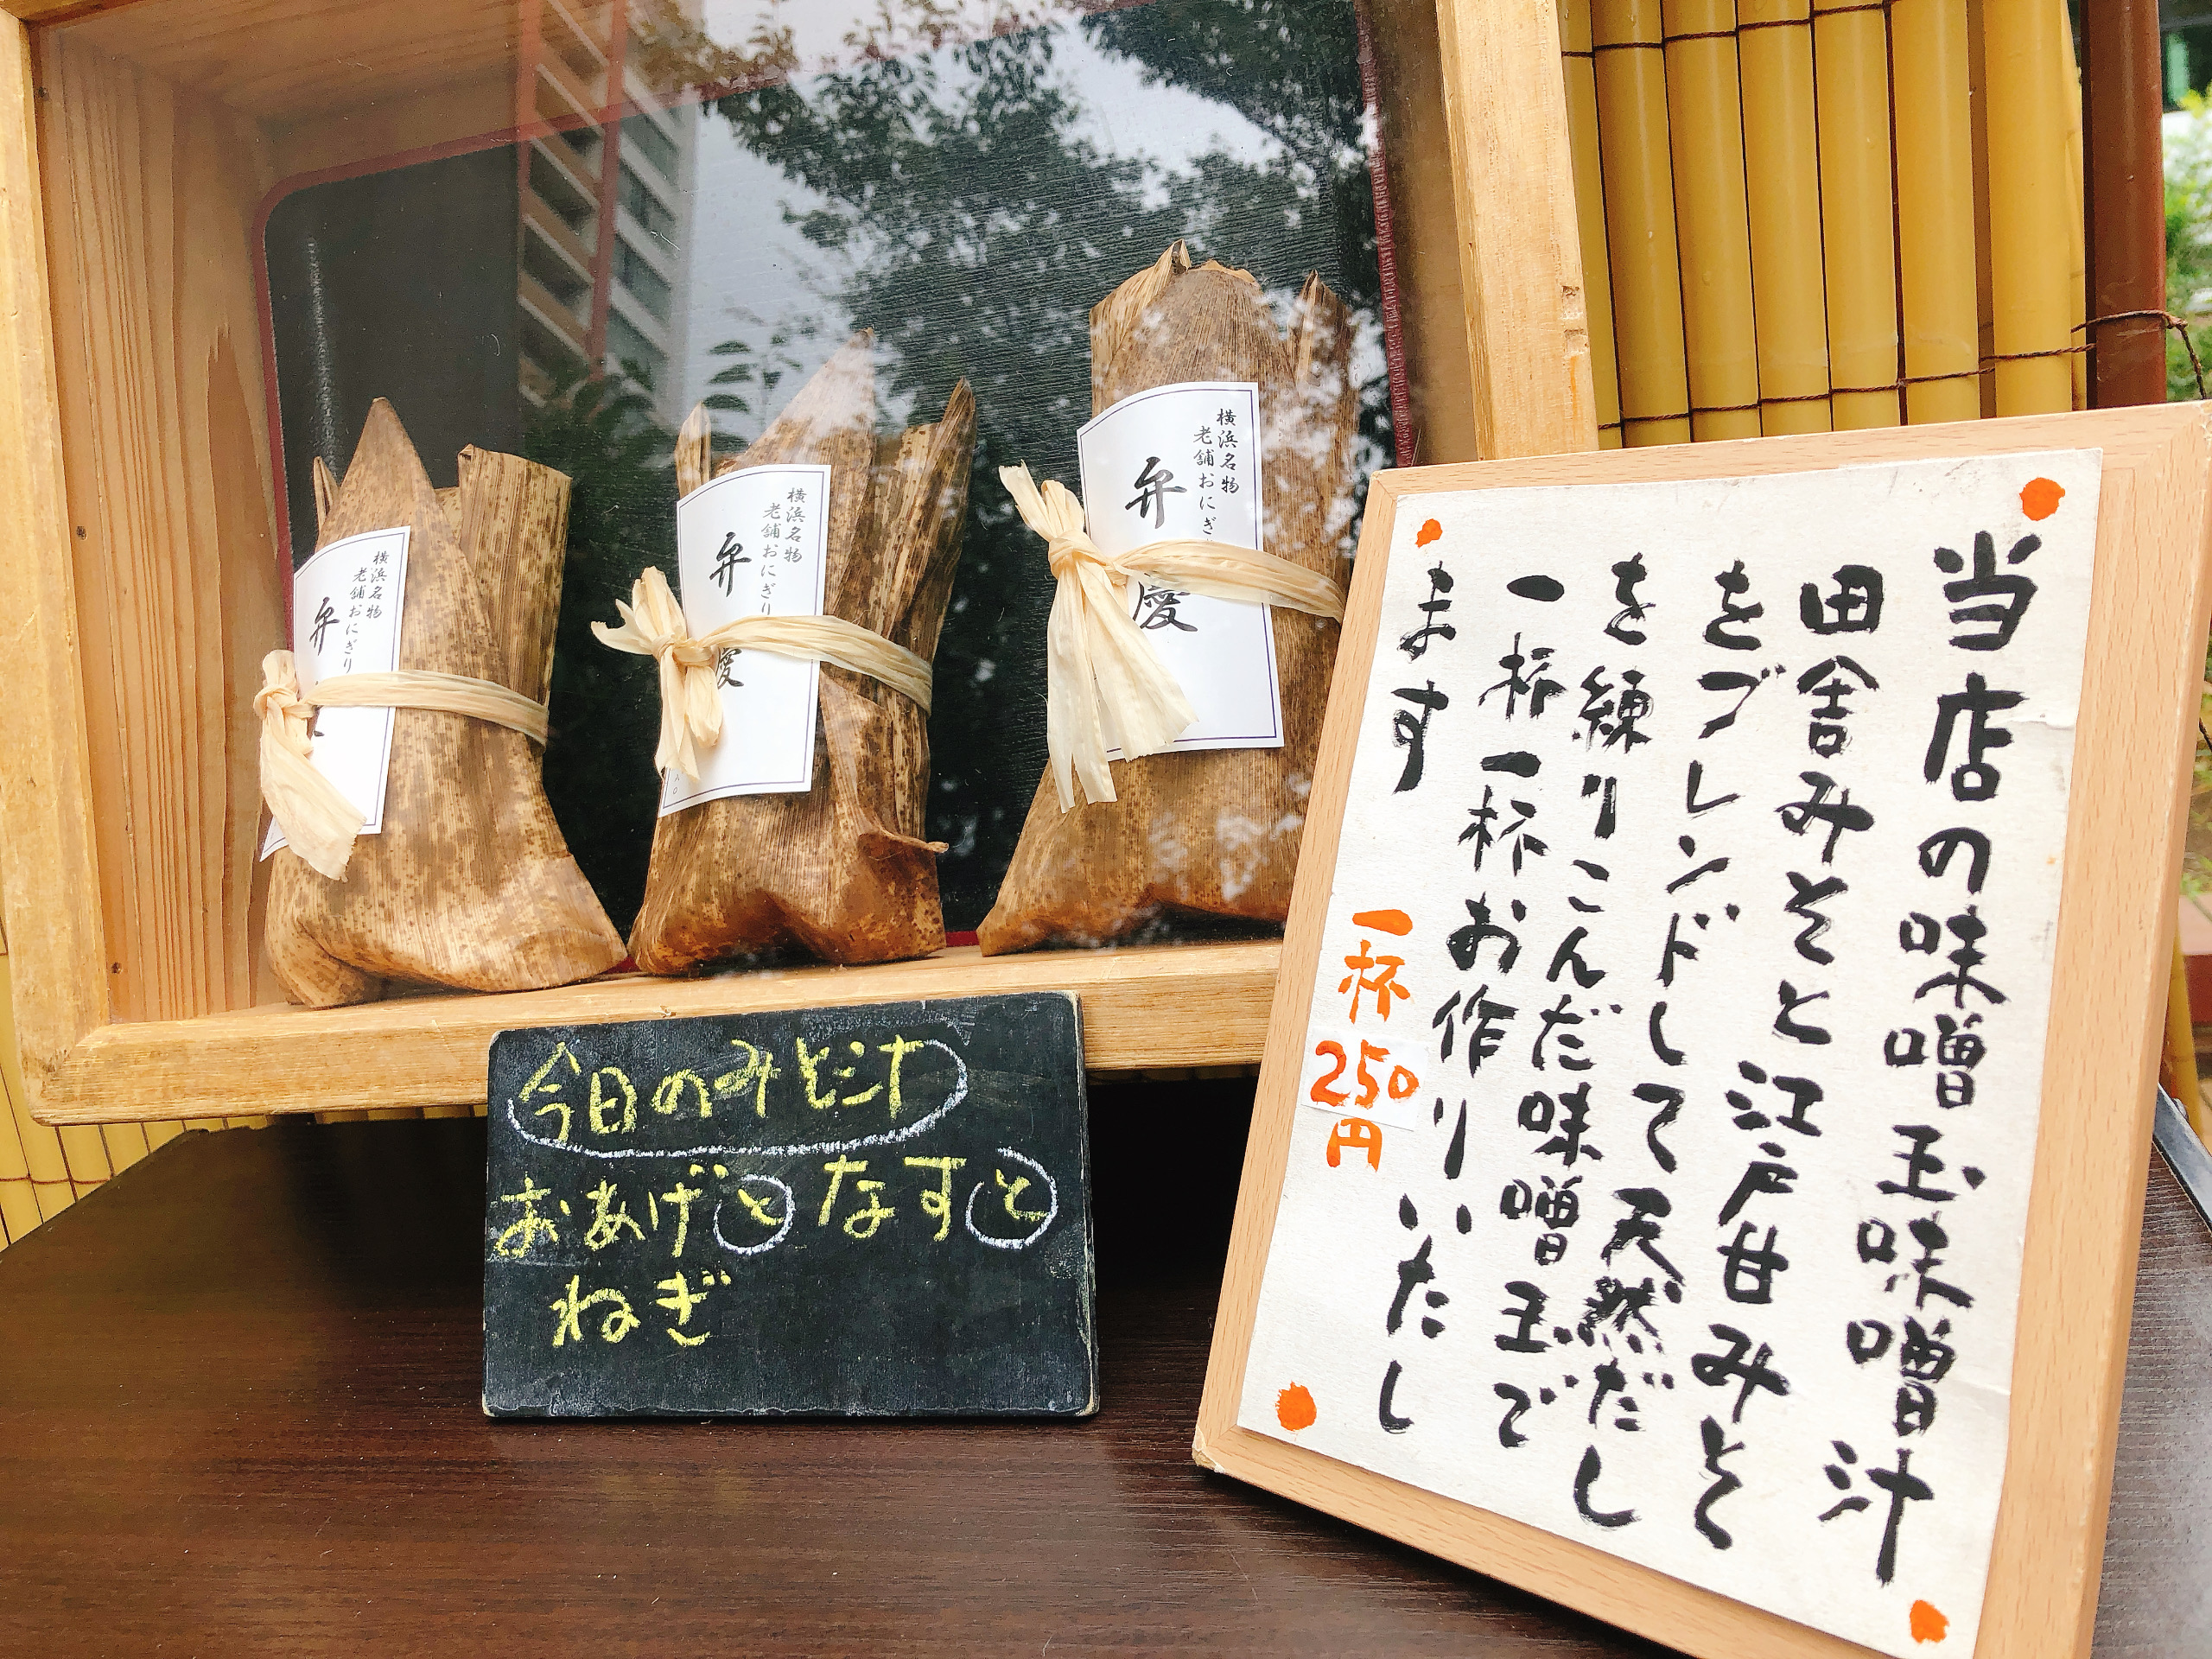 横浜名物
老舗おにぎり
弁
横浜名物
老舗おにぎり
弁慶
横浜名物
老舗おにぎ
弁慶
今日のみそ汁
おあげとなすと
ねぎ
当店の味噌玉味噌汁
田舎みそと江戸甘みそ
をブレンドして天然だし
を練りこんだ味噌玉で
一杯一杯お作りいたし
ます
一杯250円